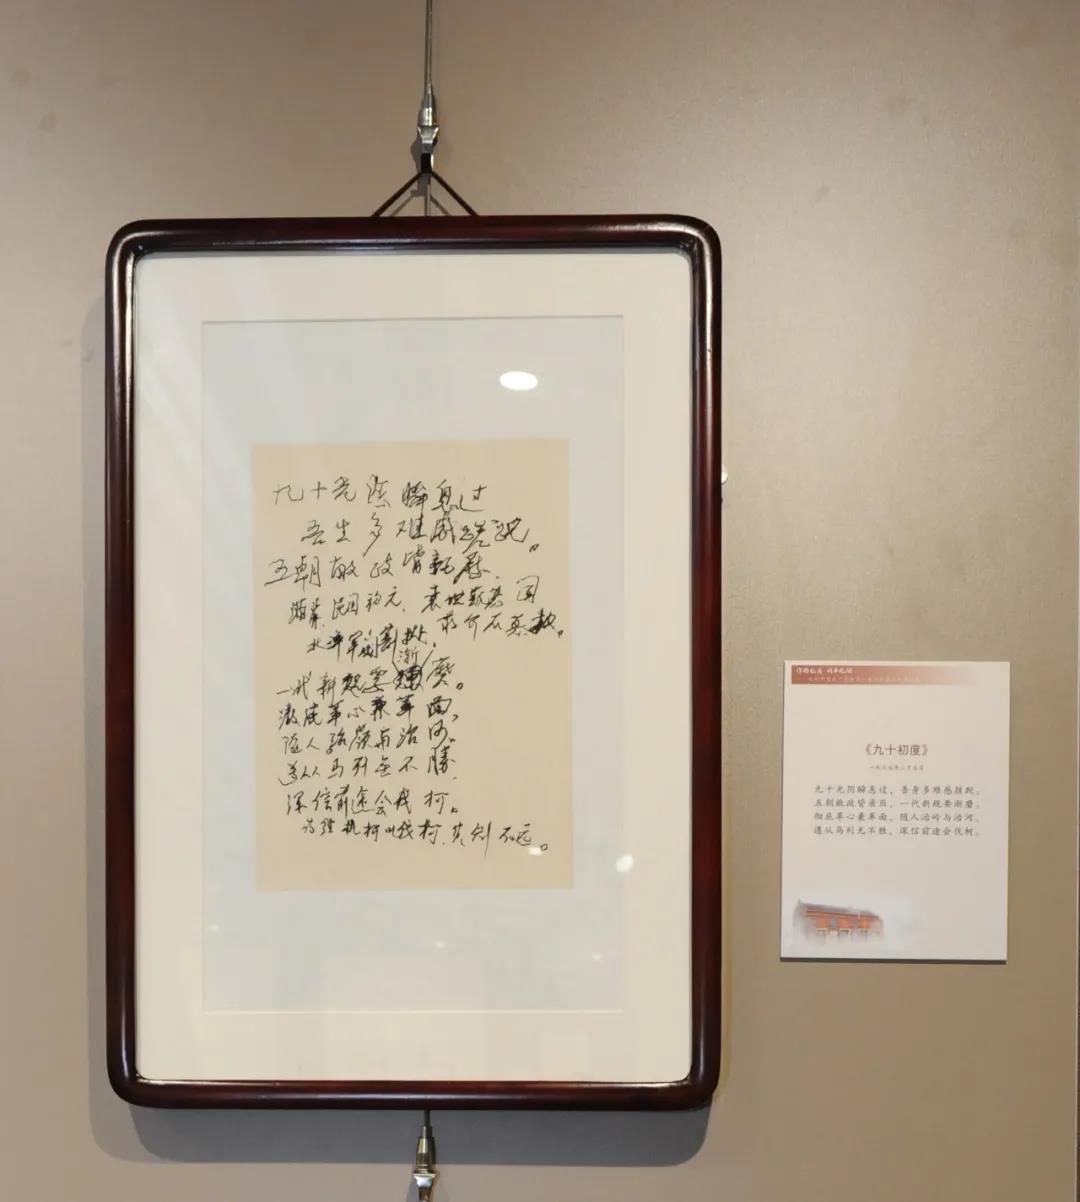 九十光阴瞬息过
吾生多难感蹉跎。
五朝敏政皆亲历，
满清，民国初元，袁世凯篡国
北洋军阀割据，蒋介石真独。
一代新规要渐磨。
澈底革心兼革面，
随人治岭与治河。
遵从马列无不胜，
深信前途会伐柯。
执柯以伐柯，其则不远。
《九十初度》
九十光阴瞬息过，吾身多难感蹉跎。
五朝敏政皆亲历，一代新规要渐磨。
彻底革心兼革面，随人治岭与治河。
遵从马列无不胜，深信前途会伐柯。